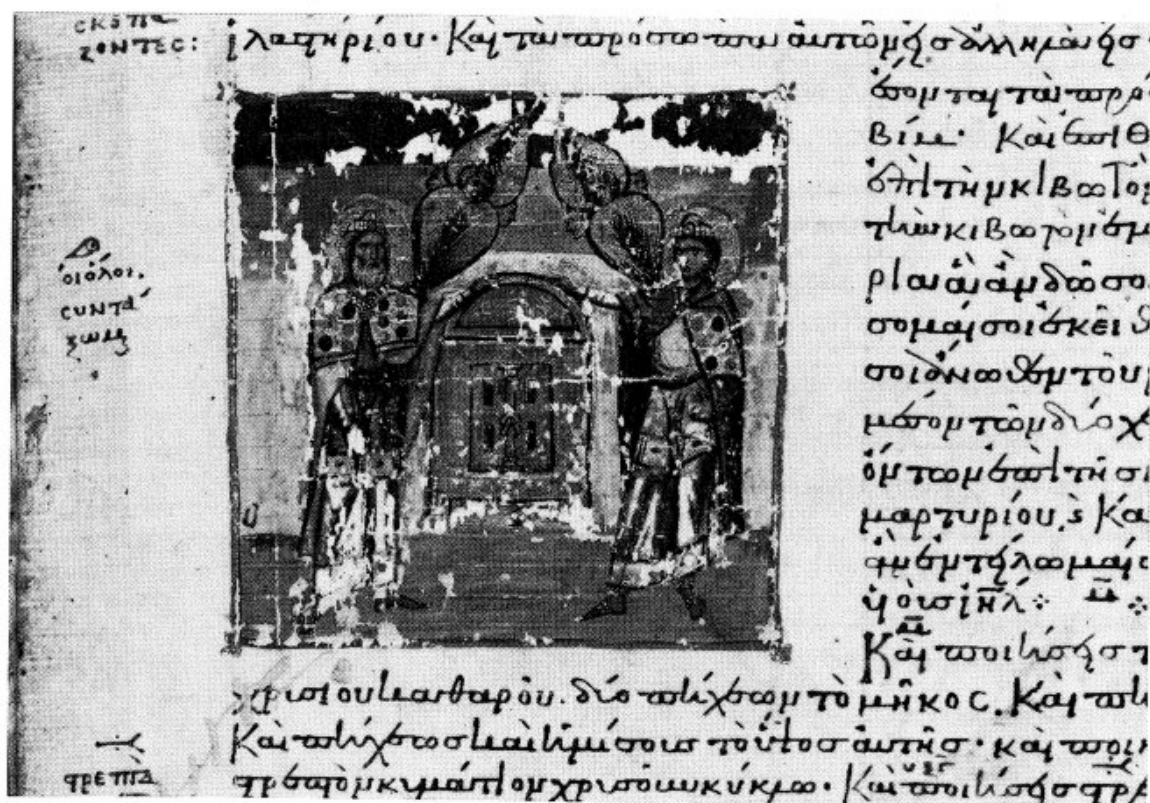 σκεπά
ζοντες:
ἱλαστηρίου· Καὶ τὰ πρόσωπα αὐτῶν εἰς ἄλληλα εἰς
ἔσονται τὰ πρό
βίμ· Καὶ ἐπιθ
ἐπὶ τὴν κιβωτὸ
τὴν κιβωτὸν ἐμ
ρια ἃ ἂν δῶ σο
σομαί σοι ἐκεῖθ
οἱ ὅλοι.
συντά
ξωμαι
σοι ἄνωθεν τοῦ
μέσον τῶν δύο χ
ὄντων ἐπὶ τῆς
μαρτυρίου, Κα
ἂν ἐντέλωμαί σ
υἱοὺς ιηλ
Καὶ ποιήσεις τ
χρυσίου καθαροῦ. δύο πήχεων τὸ μῆκος. Καὶ πή
Καὶ πήχεως καὶ ἡμίσους τὸ ὕψος αὐτῆς· καὶ ποιή
στρεπτὰ
στρεπτὸν κυμάτιον χρυσὸν κύκλω. Καὶ ποιήσεις στρε